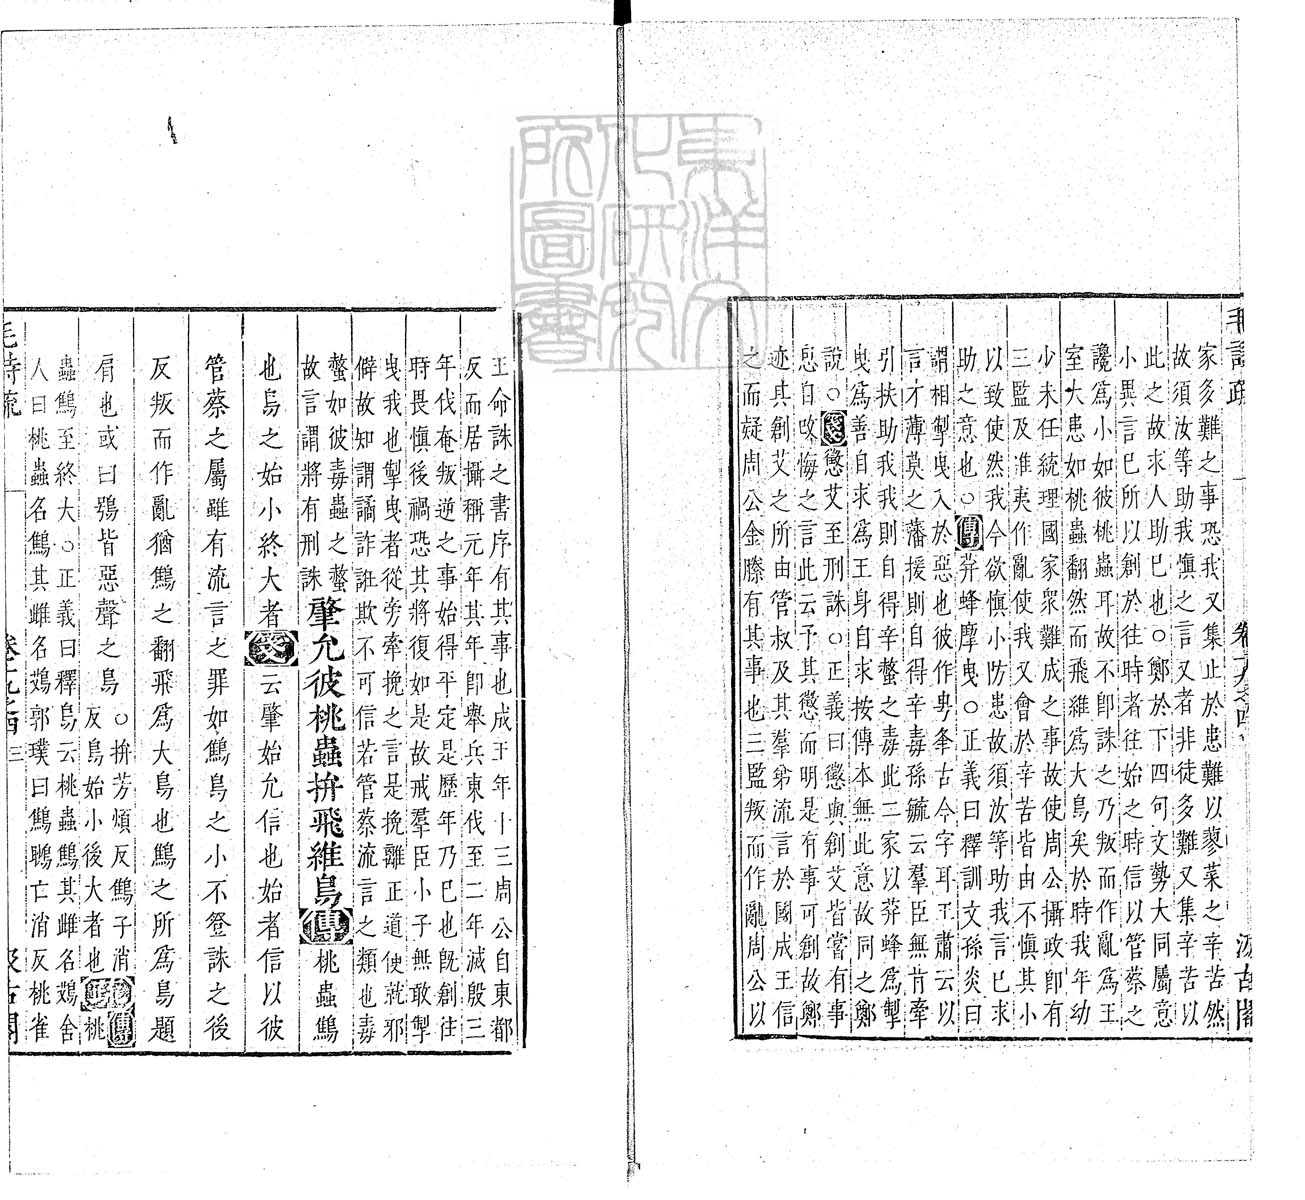 毛詩疏 卷十九之四 汲古閣
家多難之事恐我又集止於患難以蓼菜之辛苦然
故須汝等助我慎之言又者非徒多難又集辛苦以
此之故求人助已也○鄭於下四句文勢大同屬意
小異言已所以創於往時者往始之時信以管蔡之
讒爲小如彼桃蟲耳故不卽誅之乃叛而作亂爲王
室大患如桃蟲翻然而飛維爲大鳥矣於時我年幼
少未任統理國家衆難成之事故使周公攝政卽有
三監及淮夷作亂使我又會於辛苦皆由不慎其小
以致使然我今欲慎小防患故須汝等助我言已求
助之意也○傳荓蜂摩曳○正義曰釋訓文孫炎曰
謂相掣曳入於惡也彼作甹夆古今字耳王肅云以
言才薄莫之藩援則自得辛毒孫毓云羣臣無肯牽
引扶助我我則自得辛螫之毒此二家以荓蜂爲掣
曳爲善自求爲王身自求按傳本無此意故同之鄭
說○箋懲艾至刑誅○正義曰懲與創艾皆嘗有事
思自改悔之言此云予其懲而明是有事可創故鄭
迹其創艾之所由管叔及其羣弟流言於國成王信
之而疑周公金縢有其事也三監叛而作亂周公以
王命誅之書序有其事也成王年十三周公自東都
反而居攝稱元年其年卽舉兵東伐至二年滅殷三
年伐奄叛逆之事始得平定是歷年乃已也旣創往
時畏慎後禍恐其將復如是故戒羣臣小子無敢掣
曳我也掣曳者從旁牽挽之言是挽離正道使就邪
僻故知謂譎詐誑欺不可信若管蔡流言之類也毒
螫如彼毒蟲之螫
故言謂將有刑誅
肇允彼桃蟲拚飛維鳥傳桃蟲鷦
也鳥之始小終大者箋云肇始允信也始者信以彼
管蔡之屬雖有流言之罪如鷦鳥之小不登誅之後
反叛而作亂猶鷦之翻飛爲大鳥也鷦之所爲鳥題
肩也或曰鴞皆惡聲之鳥
○拚芳煩反鷦子消
反鳥始小後大者也
疏傳桃
蟲鷦至終大○正義曰釋鳥云桃蟲鷦其雌名鴱舍
人曰桃蟲名鷦其雌名鴱郭璞曰鷦䳟亡消反桃雀
毛詩疏 卷十九之四 三 汲古閣
東洋文化研究所圖書